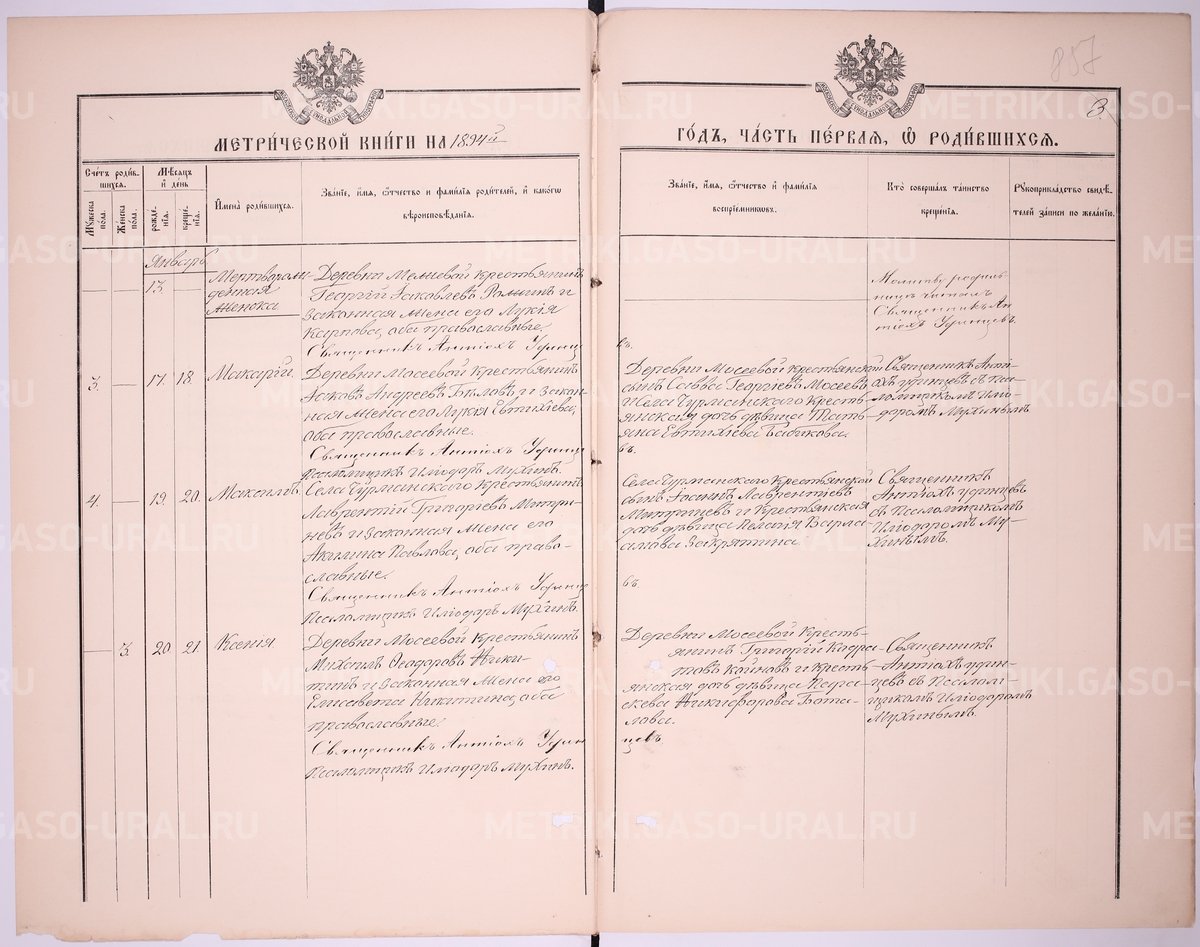 857
3.
МЕТРИ́ЧЕСКОЙ КНИ́ГИ НА 1894й
ГО́ДЪ, ЧА́СТЬ ПЕ́РВАЯ, Ѡ РОДИ́ВШИХСЯ.
Сче́тъ роди́вшихся.
Мѣ́сяцъ и҆ де́нь
Му́жеска по́ла.
Же́нска по́ла.
рожде́нїѧ.
креще́нїѧ.
И҆мена̀ роди́вшихся.
Зва́нїе, и҆́мѧ, ѻ҆́тчество и҆ фами́лїѧ роди́телей, и҆ како́гѡ вѣроисповѣ́данїѧ.
Зва́нїе, и҆́мѧ, ѻ҆́тчество и҆ фами́лїѧ воспрїе́мниковъ.
Кто̀ соверша́лъ та́инство креще́нїѧ.
Рꙋкоприкла́дство свидѣ́телей за́писи по жела́нїю.
Январь
13.
Мертворож-
денная
Женска
Деревни крестьянинъ
Георгій Іаковлевъ и
законная жена его Лукія
Карпова, оба православные.
Священникъ Антіохъ
Молитву родиль-
ницѣ читалъ
Священникъ Ан-
тіохъ Удинцевъ.
3.
17.
18.
Макарій.
Деревни Мосеевой крестьянинъ
Іаковъ Андреевъ и закон-
ная жена его Лукія Евтихіева,
оба православные.
Священникъ Антіохъ Удинц
Псаломщикъ Иліодоръ Мухинъ.
въ.
Деревни Мосеевой крестьянскій
сынъ Савва Георгіевъ Мосеевъ
и Села Чурманскаго кресть-
янская дочь дѣвица Тать-
яна Евтихіева Бабикова.
Священникъ Анті-
охъ Удинцевъ съ Пса-
ломщикомъ Иліо-
доромъ Мухинымъ
4.
19.
20.
Максимъ.
Села Чурманскаго крестьянинъ
Лаврентій Григоріевъ
и законная жена его
Акилина Павлова, оба право-
славные.
Священникъ Антіохъ Удинц
Псаломщикъ Иліодоръ Мухинъ.
въ.
Села Чурманскаго крестьянской
сынъ Іоаннъ Лаврентіевъ
и крестьянская
дочь дѣвица Пелагія Варла-
амова Закрятина.
Священникъ
Антіохъ Удинцевъ
съ Псаломщикомъ
Иліодоромъ Му-
хинымъ.
въ.
3.
20
21
Ксенія.
Деревни Мосеевой крестьянинъ
Михаилъ Ѳеодоровъ Ники-
тинъ и законная жена его
Елисавета Никитина, оба
православные.
Священникъ Антіохъ Удин
Псаломщикъ Иліодоръ Мухинъ.
Деревни Мосеевой кресть-
янинъ Григорій Кодра-
товъ и кресть-
янская дочь дѣвица Пара-
скева Никифорова Бота-
лова.
цевъ.
Священникъ
Антіохъ Удин-
цевъ съ Псалом-
щикомъ Иліодоромъ
Мухинымъ.
METRIKI.GASO-URAL.RU